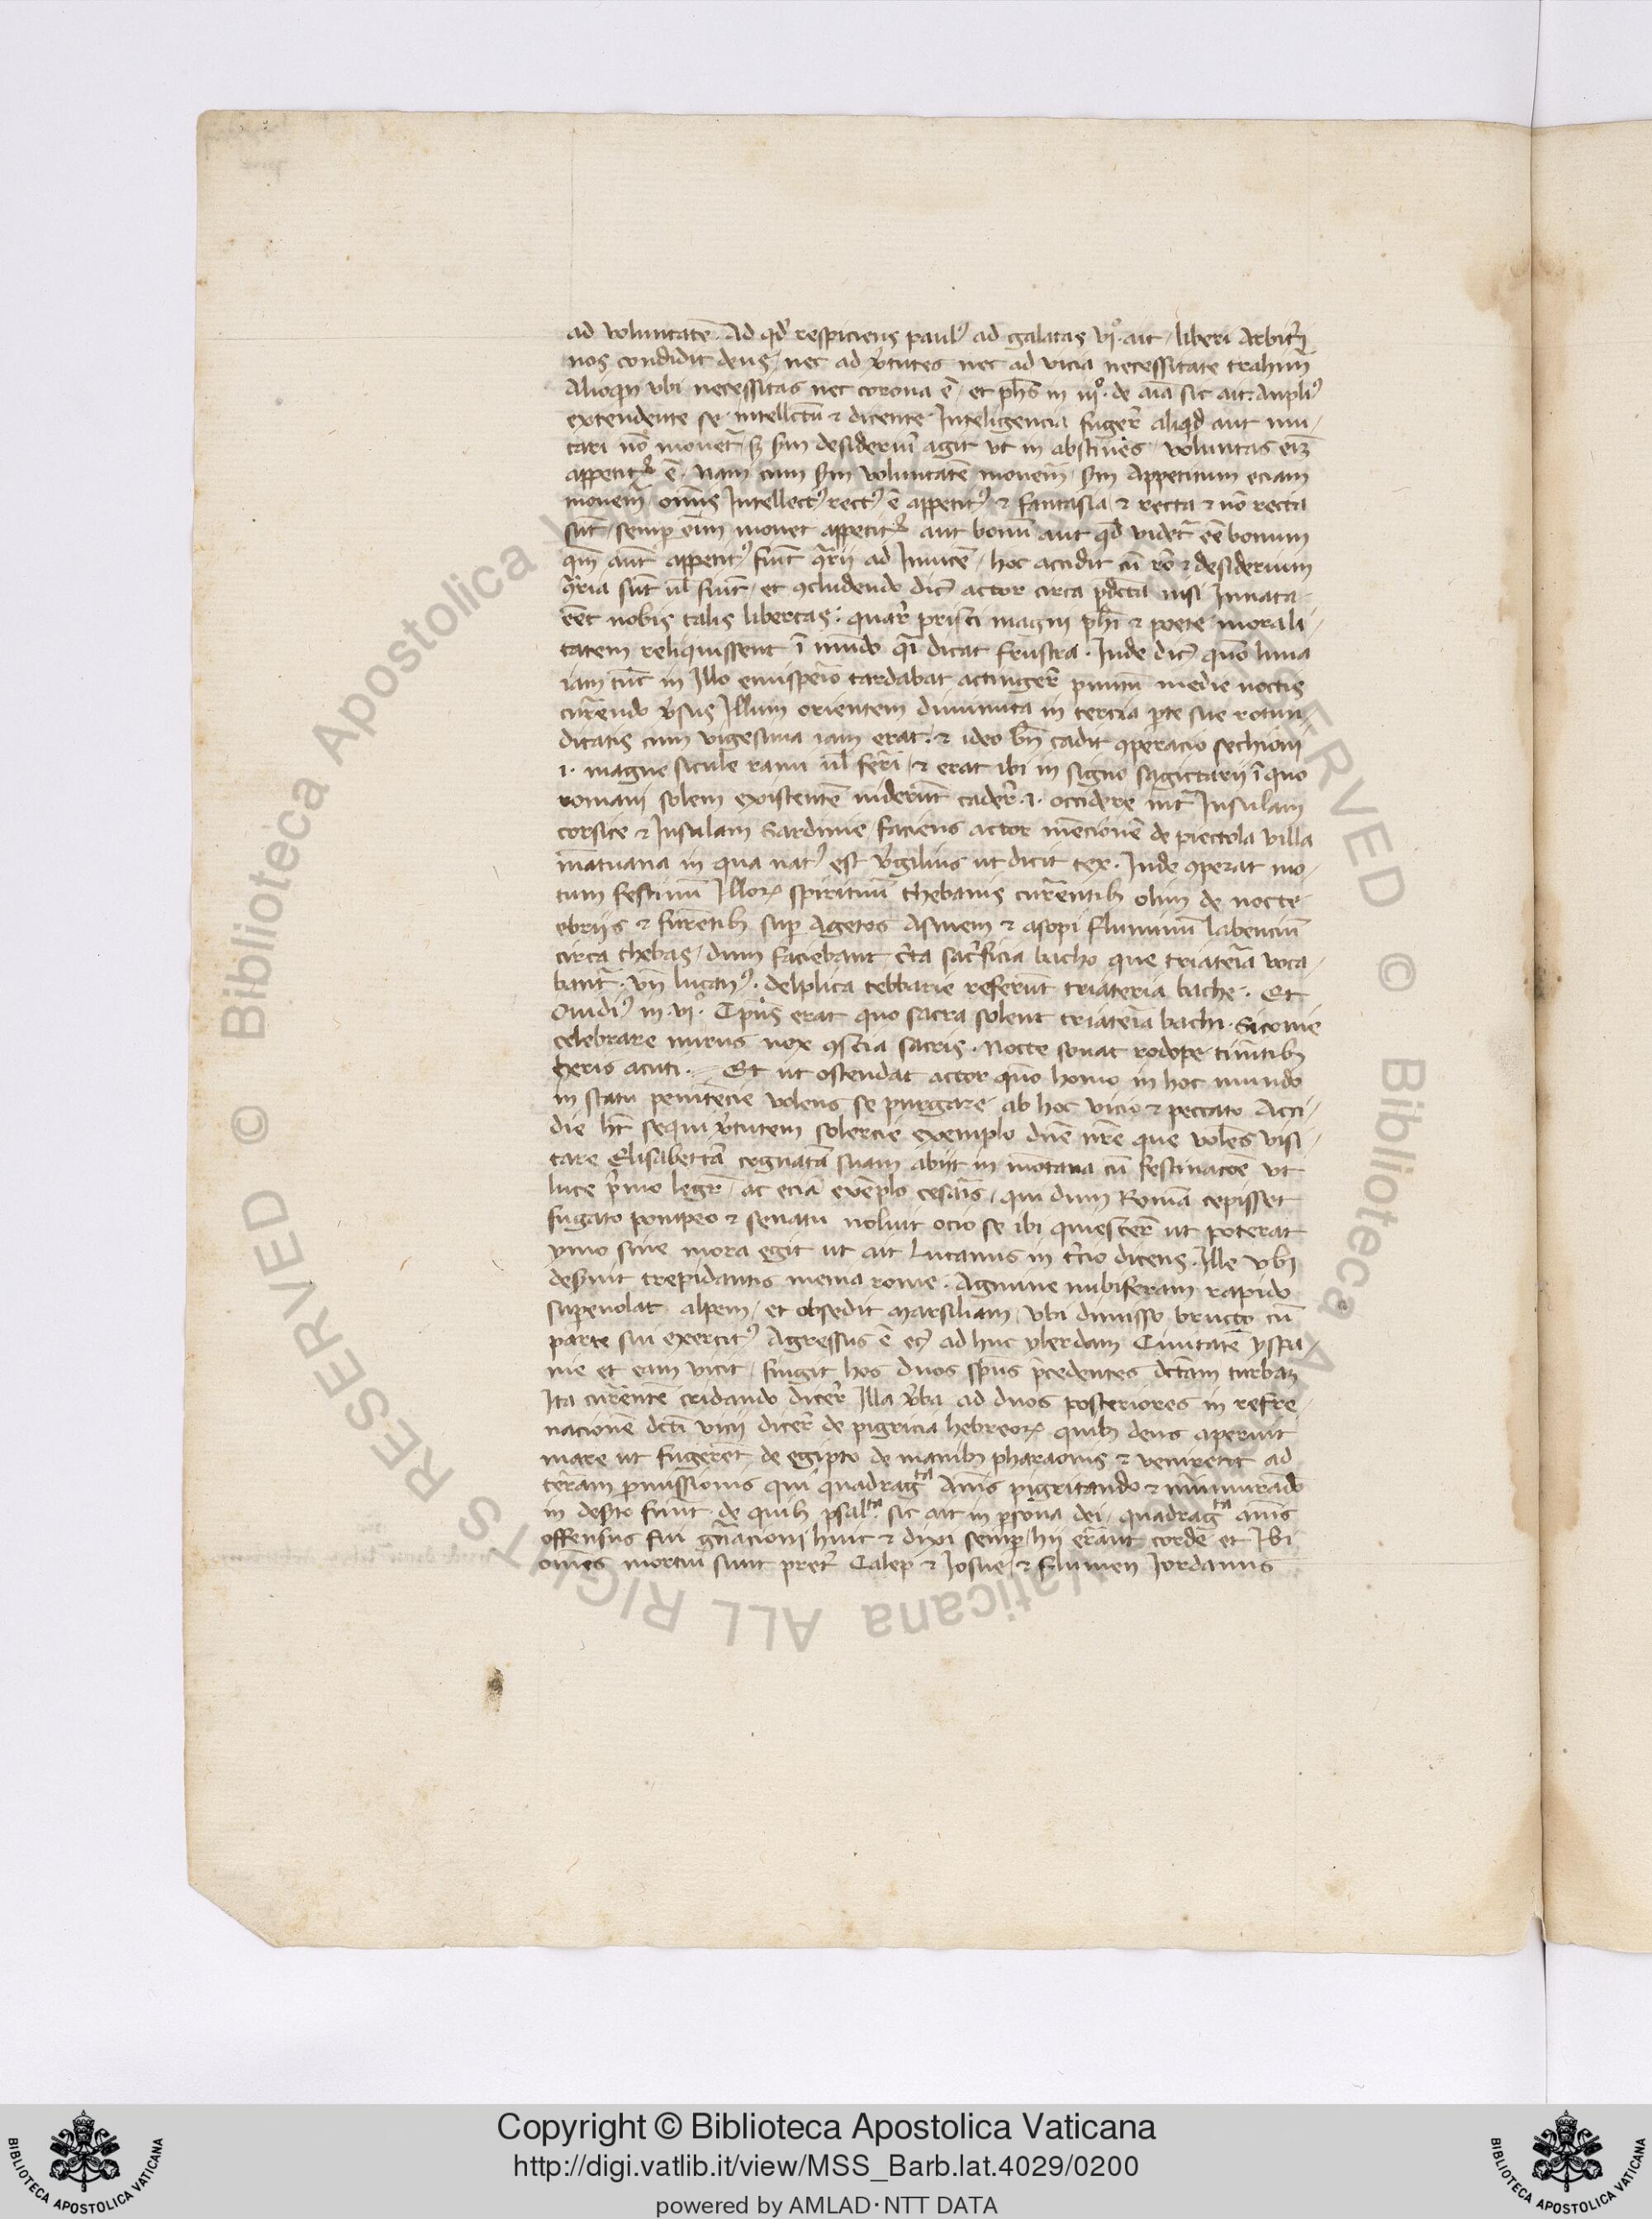 ad voluntatē. Ad qd' respiciens paul' ad galatas vi°. ait / liberi Arbit'ij
nos condidit deus / nec ad v'tutes nec ad vicia necessitate trahim'
Alioqn vbi necessitas nec corona ē / et phs in iij°. de aīa sic ait Anpli'
extendente se intellectū & dicente Inteligencia fuger' aliqd aut imi-
tari nō mouet' / s; sm desideriū agit vt in abstinēs / voluntas eīz
appetit' ē. Nam cum sm voluntatē mouem' / sm Appetitum eciam
mouem' / omīs Intellect' rect' ē appetit' & fantasia & recta & nō recta
sūt / semp eīm mouet appetit' aut bonū aut qd videt' eē bonum
qm aūt appetit' fiūt 9rij ad Inuicē / hoc accidit cū rō & desiderium
9ria sūt ul fiūt / et 9cludendo dic' actor circa pdcta nisi Innata
eēt nobis talis libertas / quar' prisci magni phi & poete morali-
tatem reliquissent ī mūdo q̄i dicat frustra. Inde dic' quō luna
iam tūc in Illo emispeīo tardabat actinger' punctū medie noctis
currendo v'sus Illum orientem diminuta in tercia pte sue rotun-
ditatis cum vigesima iam erat. & ideo bn cadit 9peracio sechioni
.i. magne sicule rami ul ferri / & erat ibi in signo sagictarij ī quo
romani solem existentē viderūt cader' .i. occidere int' Insulam
corsice & Insulam Sardinie / faciens actor mencionē de piectola villa
mātuana in qua nat' est v'gilius ut dicit tex. Inde 9perat mo-
tum festinū Illor' spirituū thebanis currentib' olim de nocte
ebrijs & furētib' sup Agetos Asinem & asopi fluminū labenciū
circa thebas / dum faciebant c'ta sac'ficia bacho que triateīa voca-
bant'. vn lucan'. delplica tebbarie referūt triateria bache. Et
Ouidi' in vi°. Tpus erat quo sacra solent triateīa bachi. Siconie
celebrare nurus nox 9scia sacris. Nocte sonat rodope tinitib'
heris acuti. Et ut ostendat actor quō homo in hoc mundo
in statu penitēcie volens se purgare ab hoc vicio & peccato Acci-
die ht sequi v'tutem solercie exemplo dnē nrē que volēs visi-
tare Elisabettā cognatā suam abijt in mōtana cū festinacōe vt
luce p'mo legr' / ac eciā exēplo cesaīs / qui dum Romā cepisset
fugato pompeo & senatu noluit ocio se ibi quiescere ut poterat
ymo sine mora egit ut ait Lucanus in t'cio dicens. Ille vbi
deseruit trepidantis menia rome. Agmine nubiferam rapido
supeuolat alpem / et obsedit Marsiliam / vbi dimisso bructo cū
parte sui exercit' Agressus ē ec' ad huc ylerdam Ciuitatē yspa-
nie et eam vicit / fingit hos duos spūs p'cedentes dctam turbaz
Ita currentē cridando dicer' Illa v'ba ad duos posteriores in refre-
nacionē dcti vicij dicer' de pigricia hebreor' quib' deus aperuit
mare ut fugeret de egipto de manib' pharaonis & venirētit ad
terram pmissionis qui quadrag.ta Anis pigritando & murmurādo
in des'to fuīnt de quib' psal.ta sic ait in psona dei / quadrag.ta annis
offensus fui gn'acioni huic & dixi semp / hij errant cordē et Ibi
omēs mortui sunt preter Calep & Josue / & flumen Jordanus
© Biblioteca Apostolica Vaticana ALL RIGHTS RESERVED © Biblioteca Apostolica Vaticana ALL RIGHTS RESERVED
Copyright © Biblioteca Apostolica Vaticana
http://digi.vatlib.it/view/MSS_Barb.lat.4029/0200
powered by AMLAD·NTT DATA
BIBLIOTECA APOSTOLICA VATICANA
BIBLIOTECA APOSTOLICA VATICANA